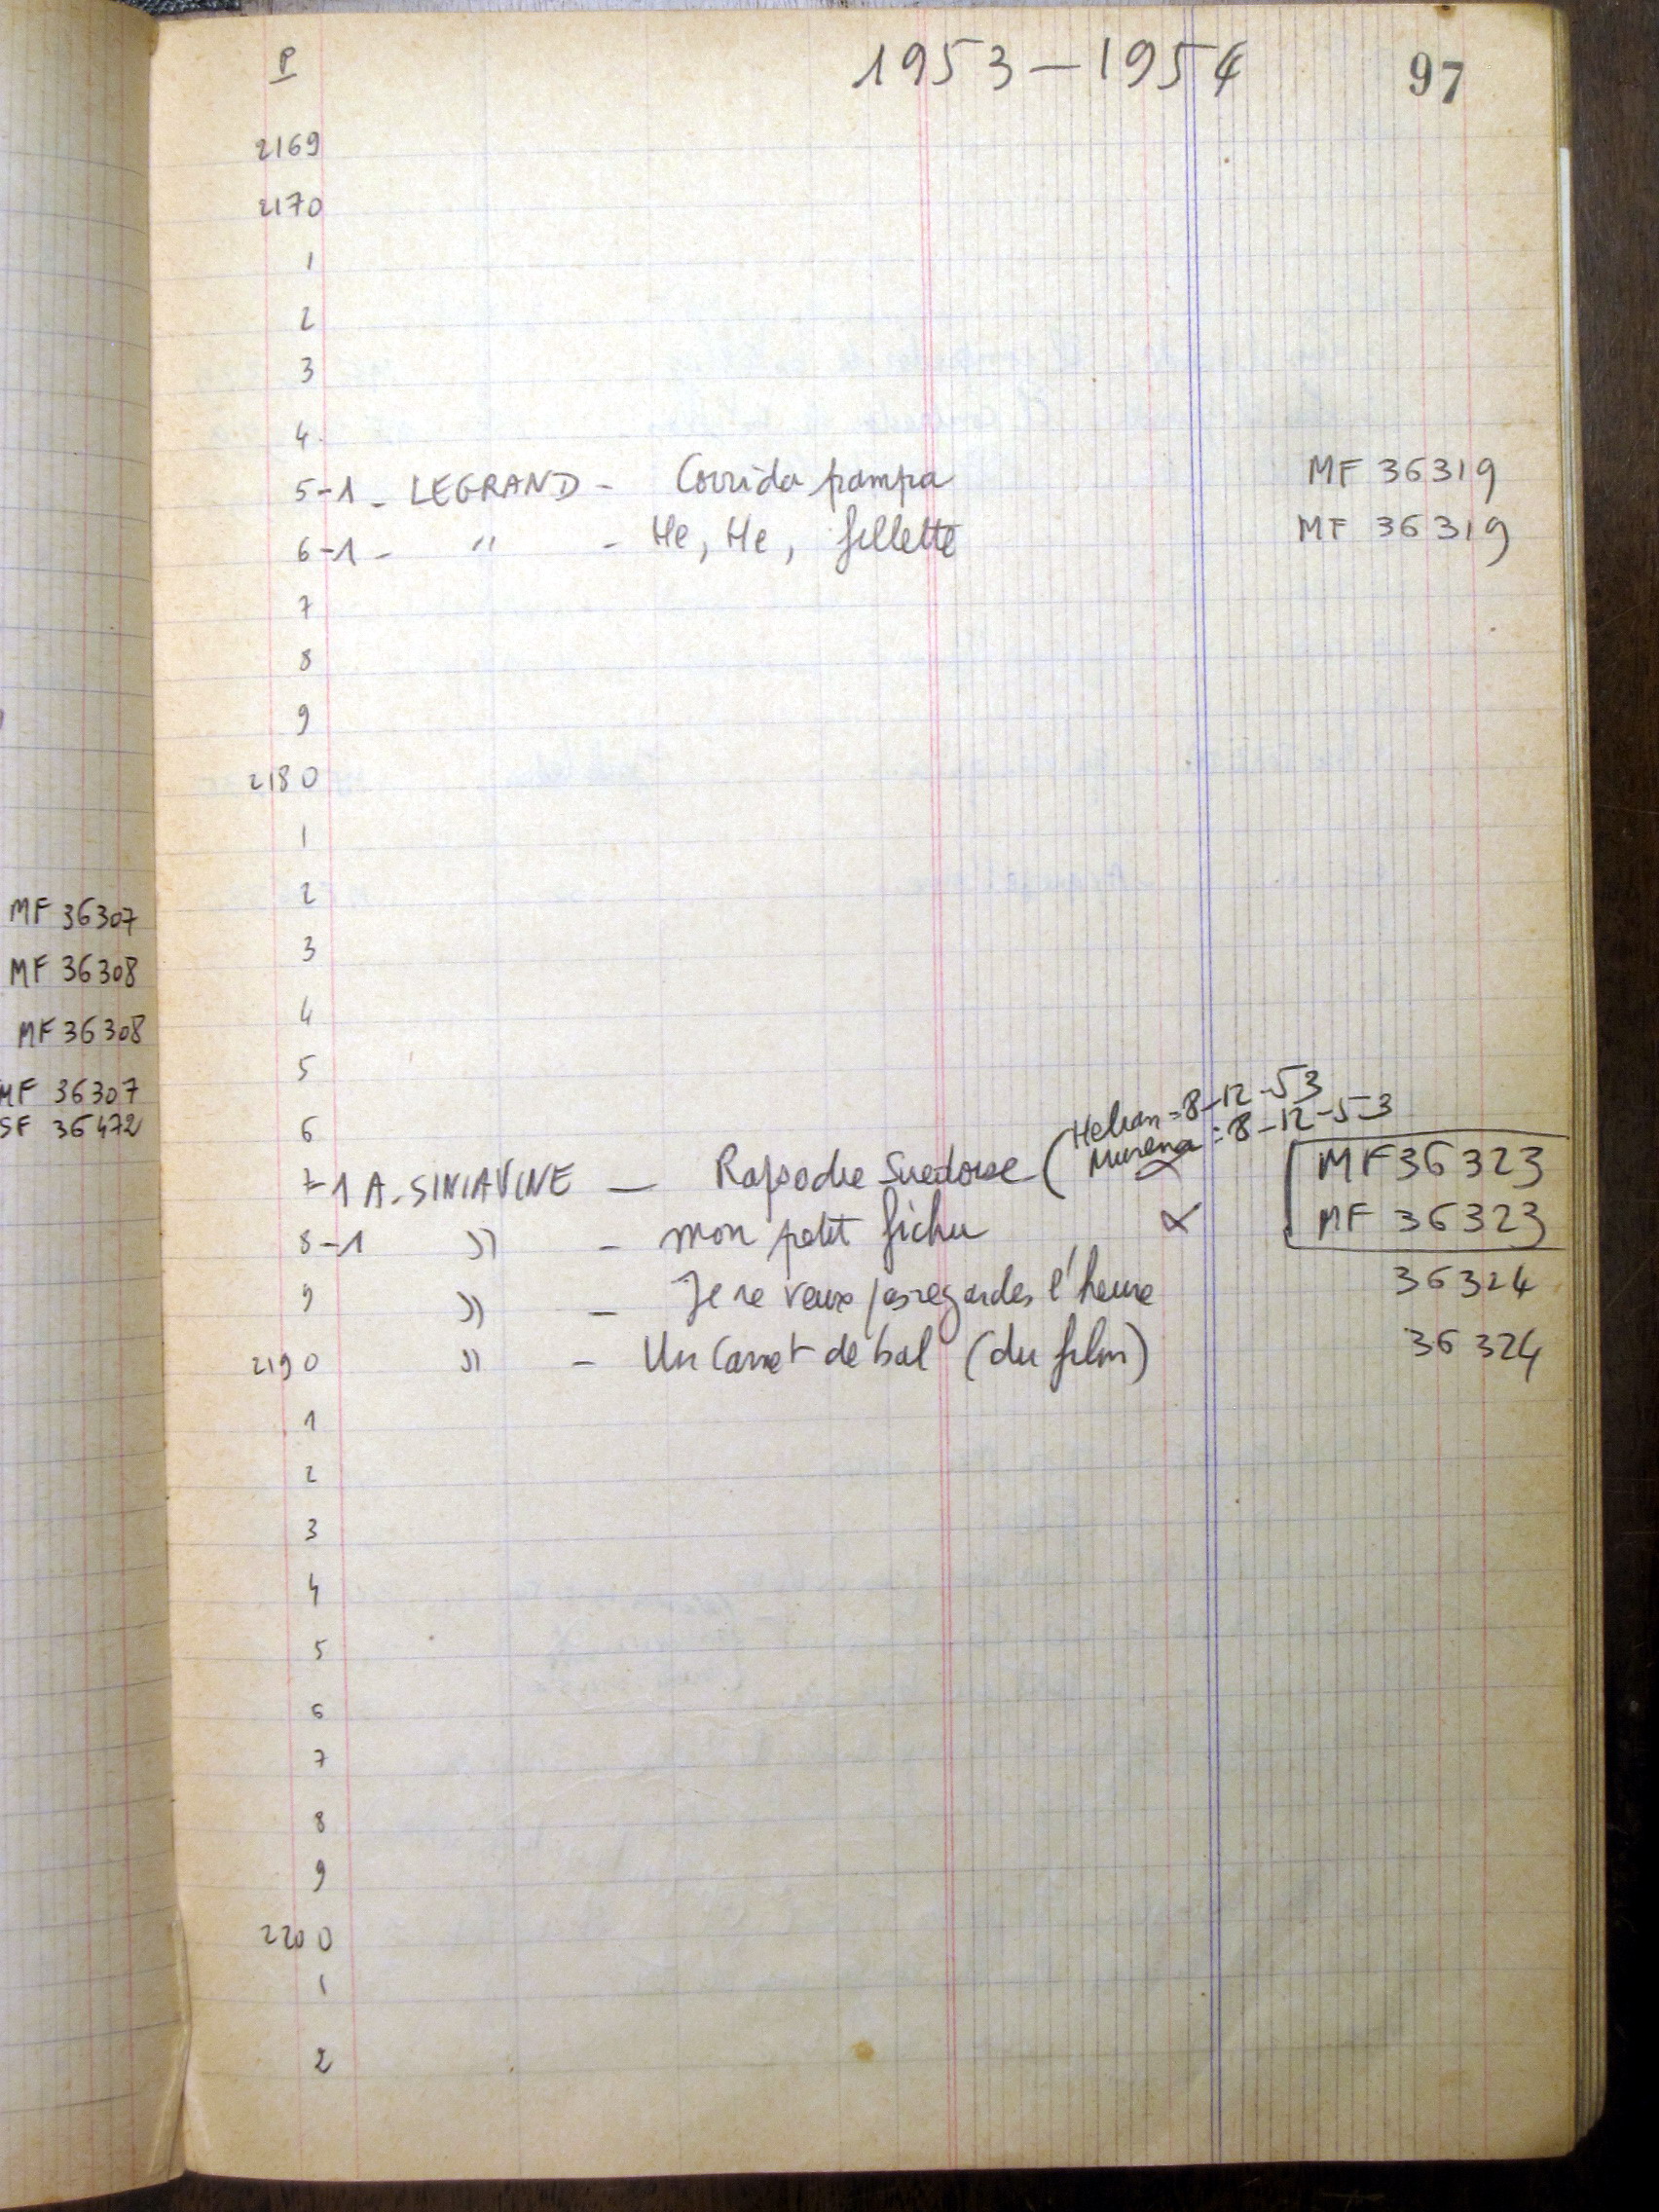 MF 36307
MF 36308
MF 36308
MF 36307
SF 36472
P 1953-1954 97
2169
2170
1
2
3
4
5-1 - LEGRAND - Corrida pampa MF 36319
6-1 - " - He, He, fillette MF 36319
7
8
9
2180
1
2
3
4
5
6
(Helian = 8-12-53
Murena = 8-12-53
7-1 A. SINIAVINE - Rapsodie Suedoise MF 36323
8-1 " - mon petit fichu MF 36323
9 " - Je ne veux pas regarder l'heure 36324
2190 " - Un Carnet de bal (du film) 36324
1
2
3
4
5
6
7
8
9
2200
1
2